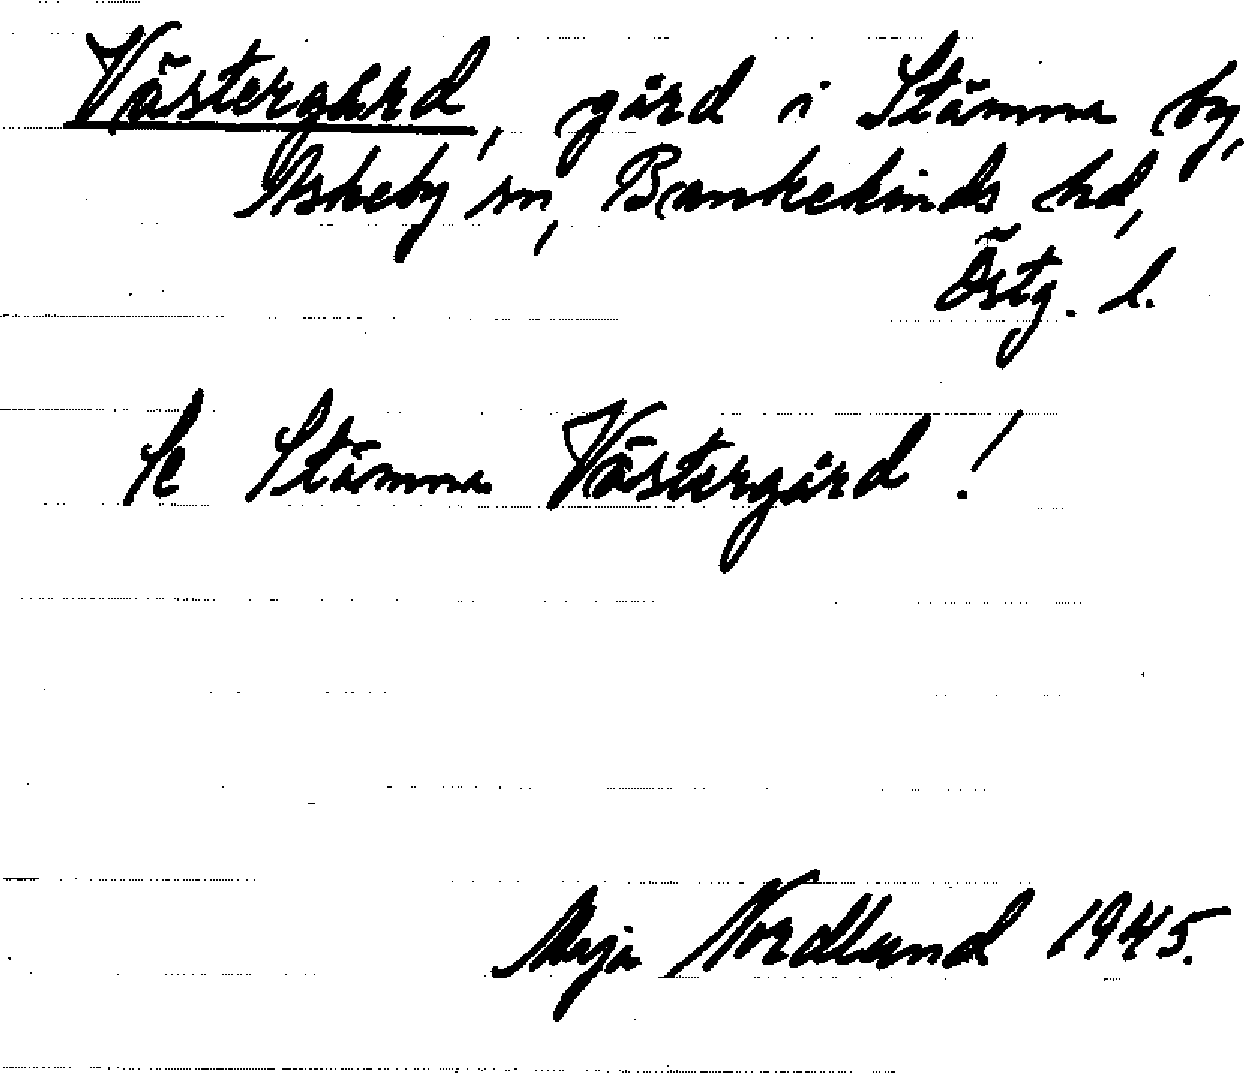 Västergård, gård i Stämma by,
Askeby sn, Bankekinds hd,
Östg. l.
Se Stämma Västergård!
Maja Nordlund 1945.